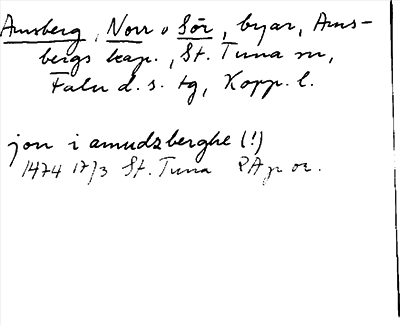 Amsberg, Norr o Sör, byar, Ams-
bergs kap., St. Tuna sn,
Falu d. s. tg, Kopp. l.
jon i amudzberghe (!)
1474 17/3 St. Tuna RAp or.